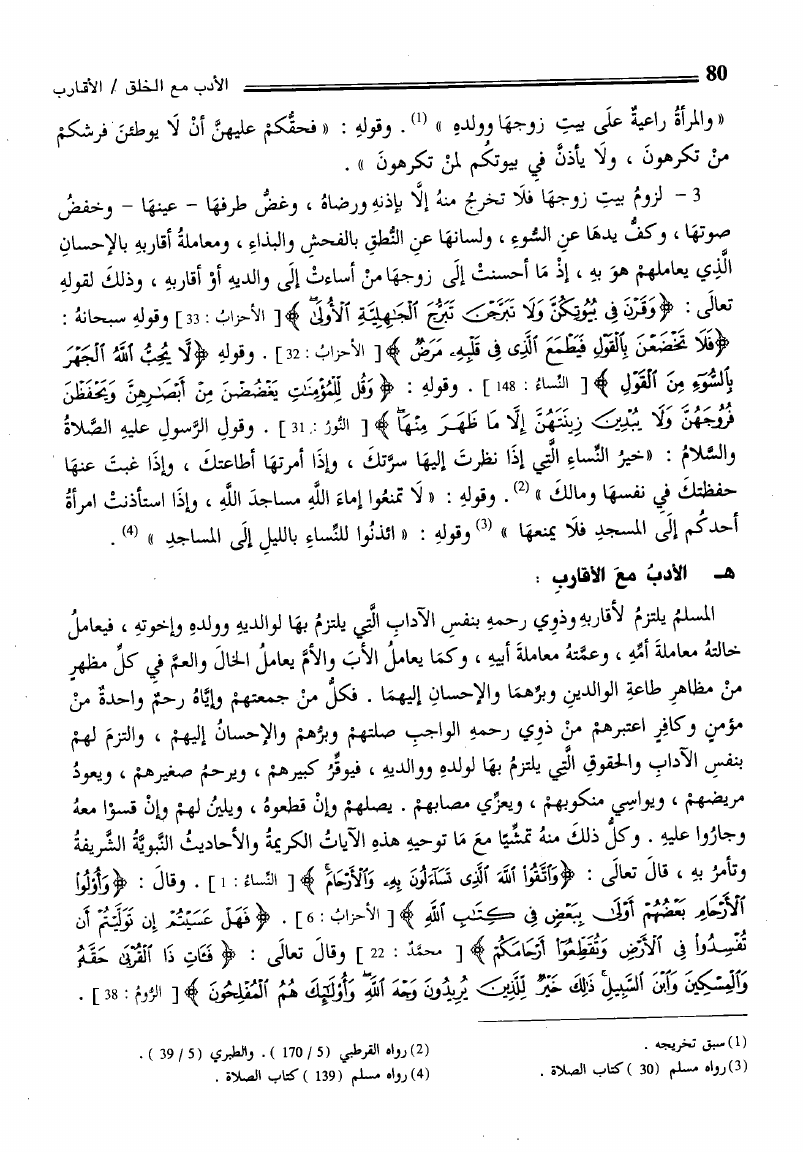 80 الأدب مع الخلق / الأقارب
« والمرأةُ راعيةٌ علَى بيتِ زوجهَا وولدهِ » (1) . وقولهِ : « فحقُّكمْ عليهنَّ أنْ لَا يوطئنَ فرشكمْ
منْ تكرهونَ ، ولَا يأذنَّ في بيوتكُم لمنْ تكرهونَ » .
3 - لزومُ بيتِ زوجهَا فلَا تخرجُ منهُ إلَّا بإذنهِ ورضاهُ ، وغضُّ طرفهَا - عينهَا - وخفضُ
صوتهَا ، وكفُّ يدهَا عنِ السُّوءِ ، ولسانهَا عنِ النُّطقِ بالفحشِ والبذاءِ ، ومعاملةُ أقاربهِ بالإحسانِ
الَّذِي يعاملهمْ هوَ بهِ ، إذْ مَا أحسنتْ إلَى زوجهَا منْ أساءتْ إلَى والديهِ أوْ أقاربهِ ، وذلكَ لقولهِ
تعالَى : ﴿ وَقَرْنَ فِي بُيُوتِكُنَّ وَلَا تَبَرَّجْنَ تَبَرُّجَ ٱلْجَٰهِلِيَّةِ ٱلْأُولَىٰ ﴾ [ الأحزابُ : 33 ] وقولهِ سبحانهُ :
﴿ فَلَا تَخْضَعْنَ بِٱلْقَوْلِ فَيَطْمَعَ ٱلَّذِى فِى قَلْبِهِۦ مَرَضٌ ﴾ [ الأحزابُ : 32 ] . وقولهِ ﴿ لَّا يُحِبُّ ٱللَّهُ ٱلْجَهْرَ
بِٱلسُّوٓءِ مِنَ ٱلْقَوْلِ ﴾ [ النِّساءُ : 148 ] . وقولهِ : ﴿ وَقُل لِّلْمُؤْمِنَٰتِ يَغْضُضْنَ مِنْ أَبْصَٰرِهِنَّ وَيَحْفَظْنَ
فُرُوجَهُنَّ وَلَا يُبْدِينَ زِينَتَهُنَّ إِلَّا مَا ظَهَرَ مِنْهَا ﴾ [ النُّورُ : 31 ] . وقولِ الرَّسولِ عليهِ الصَّلاةُ
والسَّلامُ : « خيرُ النِّساءِ الَّتِي إذَا نظرتَ إليهَا سرَّتكَ ، وإذَا أمرتهَا أطاعتكَ ، وإذَا غبتَ عنهَا
حفظتكَ في نفسهَا ومالكَ » (2) . وقولهِ : « لَا تمنعُوا إماءَ اللَّهِ مساجدَ اللَّهِ ، وإذَا استأذنتْ امرأةُ
أحدكُم إلَى المسجدِ فلَا يمنعهَا » (3) وقولهِ : « ائذنُوا للنِّساءِ بالليلِ إلَى المساجدِ » (4) .
هـ - الأدبُ معَ الأقاربِ :
المسلمُ يلتزمُ لأقاربهِ وذوِي رحمهِ بنفسِ الآدابِ الَّتِي يلتزمُ بهَا لوالديهِ وولدهِ وإخوتهِ ، فيعاملُ
خالتهُ معاملةَ أمِّهِ ، وعمَّتهُ معاملةَ أبيهِ ، وكمَا يعاملُ الأبَ والأمَّ يعاملُ الخالَ والعمَّ في كلِّ مظهرٍ
منْ مظاهرِ طاعةِ الوالدينِ وبرِّهمَا والإحسانِ إليهمَا . فكلُّ منْ جمعتهمْ وإيَّاهُ رحمٌ واحدةٌ منْ
مؤمنٍ وكافرٍ اعتبرهمْ منْ ذوِي رحمهِ الواجبِ صلتهمْ وبرُّهمْ والإحسانُ إليهمْ ، والتزمَ لهمْ
بنفسِ الآدابِ والحقوقِ الَّتِي يلتزمُ بهَا لولدهِ ووالديهِ ، فيوقِّرُ كبيرهمْ ، ويرحمُ صغيرهمْ ، ويعودُ
مريضهمْ ، ويواسِي منكوبهمْ ، ويعزِّي مصابهمْ . يصلهمْ وإنْ قطعوهُ ، ويلينُ لهمْ وإنْ قسوْا معهُ
وجارُوا عليهِ . وكلُّ ذلكَ منهُ تمشِّيًا معَ مَا توحيهِ هذهِ الآياتُ الكريمةُ والأحاديثُ النَّبويَّةُ الشَّريفةُ
وتأمرُ بهِ ، قالَ تعالَى : ﴿ وَٱتَّقُوا۟ ٱللَّهَ ٱلَّذِى تَسَآءَلُونَ بِهِۦ وَٱلْأَرْحَامَ ﴾ [ النِّساءُ : 1 ] . وقالَ : ﴿ وَأُو۟لُوا۟
ٱلْأَرْحَامِ بَعْضُهُمْ أَوْلَىٰ بِبَعْضٍ فِى كِتَٰبِ ٱللَّهِ ﴾ [ الأحزابُ : 6 ] . ﴿ فَهَلْ عَسَيْتُمْ إِن تَوَلَّيْتُمْ أَن
تُفْسِدُوا۟ فِى ٱلْأَرْضِ وَتُقَطِّعُوٓا۟ أَرْحَامَكُمْ ﴾ [ محمَّدٌ : 22 ] وقالَ تعالَى : ﴿ فَـَٔاتِ ذَا ٱلْقُرْبَىٰ حَقَّهُۥ
وَٱلْمِسْكِينَ وَٱبْنَ ٱلسَّبِيلِ ذَٰلِكَ خَيْرٌ لِّلَّذِينَ يُرِيدُونَ وَجْهَ ٱللَّهِ وَأُو۟لَٰٓئِكَ هُمُ ٱلْمُفْلِحُونَ ﴾ [ الرُّومُ : 38 ] .
(1) سبق تخريجه . (2) رواه القرطبي ( 5 / 170 ) . والطبري ( 5 / 39 ) .
(3) رواه مسلم ( 30 ) كتاب الصلاة . (4) رواه مسلم ( 139 ) كتاب الصلاة .